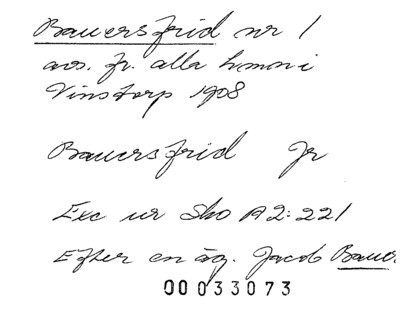 Bauersfrid nr 1
avs. fr. alla hmn i
Vinstorp 1908
Bauersfrid Jr
Exc ur Sko A2:221
Efter en äg. Jacob Bauer
00033073